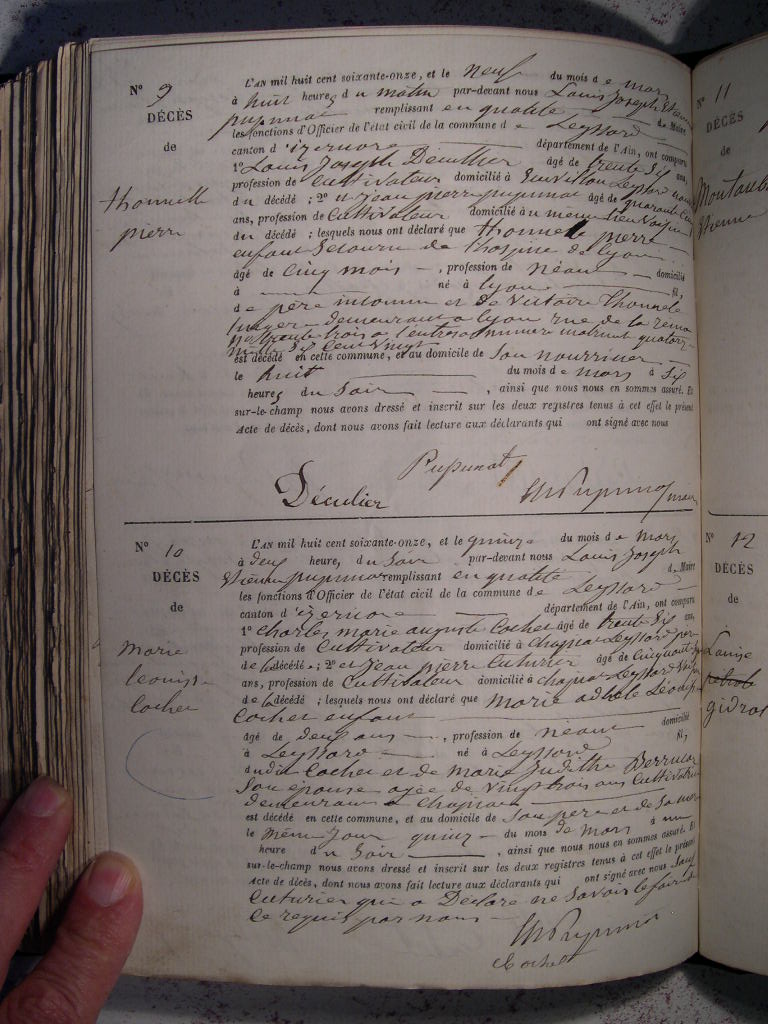 N° 9
DÉCÈS
de
thonnelle
pierre
L'AN mil huit cent soixante-onze, et le neuf du mois de mars
à huit heures du matin par-devant nous Louis Joseph Etienne
pupunat remplissant en qualité de Maire
les fonctions d'Officier de l'état civil de la commune de Leyssard
canton d'izernore département de l'Ain, ont comparu
1° Louis Joseph Déculier âgé de trente six ans,
profession de Cultivateur domicilié à Leyssard
du décédé ; 2° et Jean pierre pupunat âgé de quarante cinq
ans, profession de Cultivateur domicilié au même lieu voisin
du décédé ; lesquels nous ont déclaré que thonnele pierre
enfant de l'hospice de lyon
âgé de Cinq mois, profession de néant domicilié
à né à lyon fil
de père inconnu et de Victoire thonnele
demeurant a lyon rue de la
trois a numero matricule quatorze
mille Six Cent Vingt
est décédé en cette commune, et au domicile de Son nourricier
le huit du mois de mars à Six
heures du Soir, ainsi que nous nous en sommes assuré. Et
sur-le-champ nous avons dressé et inscrit sur les deux registres tenus à cet effet le présent
Acte de décès, dont nous avons fait lecture aux déclarants qui ont signé avec nous
Pupunat
Déculier
Pupunat maire
N° 10
DÉCÈS
de
marie
leonise
Cochet
L'AN mil huit cent soixante-onze, et le quinze du mois de Mars
à deux heures du Soir par-devant nous Louis Joseph
Etienne pupunat remplissant en qualité de Maire
les fonctions d'Officier de l'état civil de la commune de Leyssard
canton d'izernore département de l'Ain, ont comparu
1° Charles marie auguste Cochet âgé de trente six ans,
profession de Cultivateur domicilié à Chapiat Leyssard père
de la décédée ; 2° et Jean pierre Cuturier âgé de Cinquante
ans, profession de Cultivateur domicilié à chapiat Leyssard
de la décédé ; lesquels nous ont déclaré que Marie adhele Léonise
Cochet enfant
âgé de deux ans, profession de néant domicilié
à Leyssard né à Leyssard fil
dudit Cochet et de Marie Judithe
Son épouse agée de Vingt trois ans Cultivatrice
demeurant a Chapiat
est décédé en cette commune, et au domicile de Son père et de Sa mère
le même Jour quinze du mois de Mars à une
heure du Soir, ainsi que nous nous en sommes assuré. Et
sur-le-champ nous avons dressé et inscrit sur les deux registres tenus à cet effet le présent
Acte de décès, dont nous avons fait lecture aux déclarants qui ont signé avec nous Sauf
Cuturier qui a Déclaré ne Savoir le faire
Ce requis par nous
Pupunat
Cochet
N° 11
DÉCÈS
de
Etienne
N° 12
DÉCÈS
de
Louise